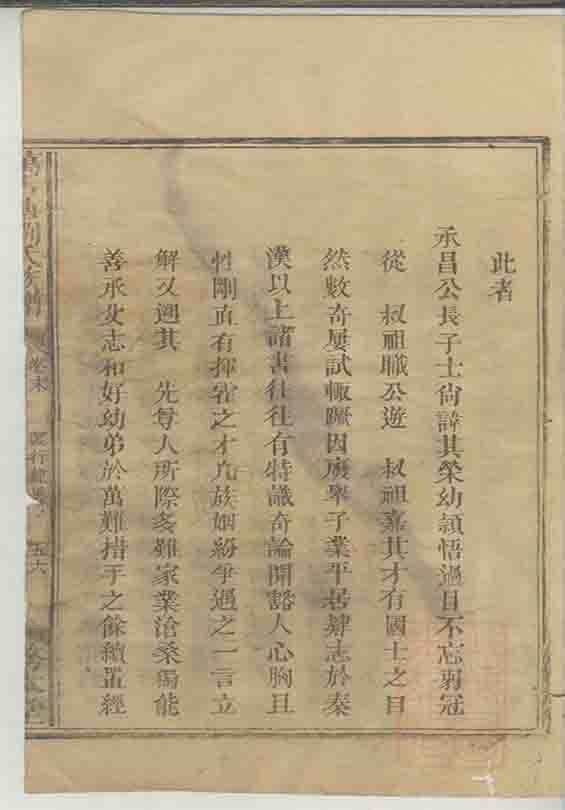 此者
承昌公長子士尙諱其榮幼頴悟過目不忘弱冠
從　叔祖職公遊　叔祖嘉其才有國士之目
然數奇屢試輙躓因廢舉子業平居肆志於秦
漢以上諸書往往有特識奇論開豁人心胸且
性剛直有揮霍之才凡族姻紛爭遇之一言立
解又遡其　先尊人所際多難家業滄桑獨能
善承父志和好幼弟於萬難措手之餘續置經
劉氏族譜
卷末
五六